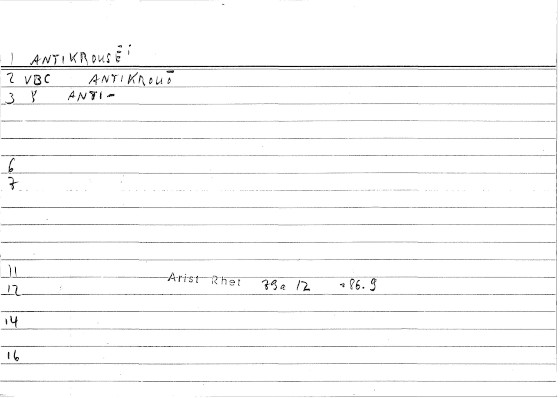 1 ANTIKROUSĒI
2 VBC ANTIKROUŌ
3 Y ANTI-
6
7
11
Arist Rhet 79a 12 =86.9
12
14
16